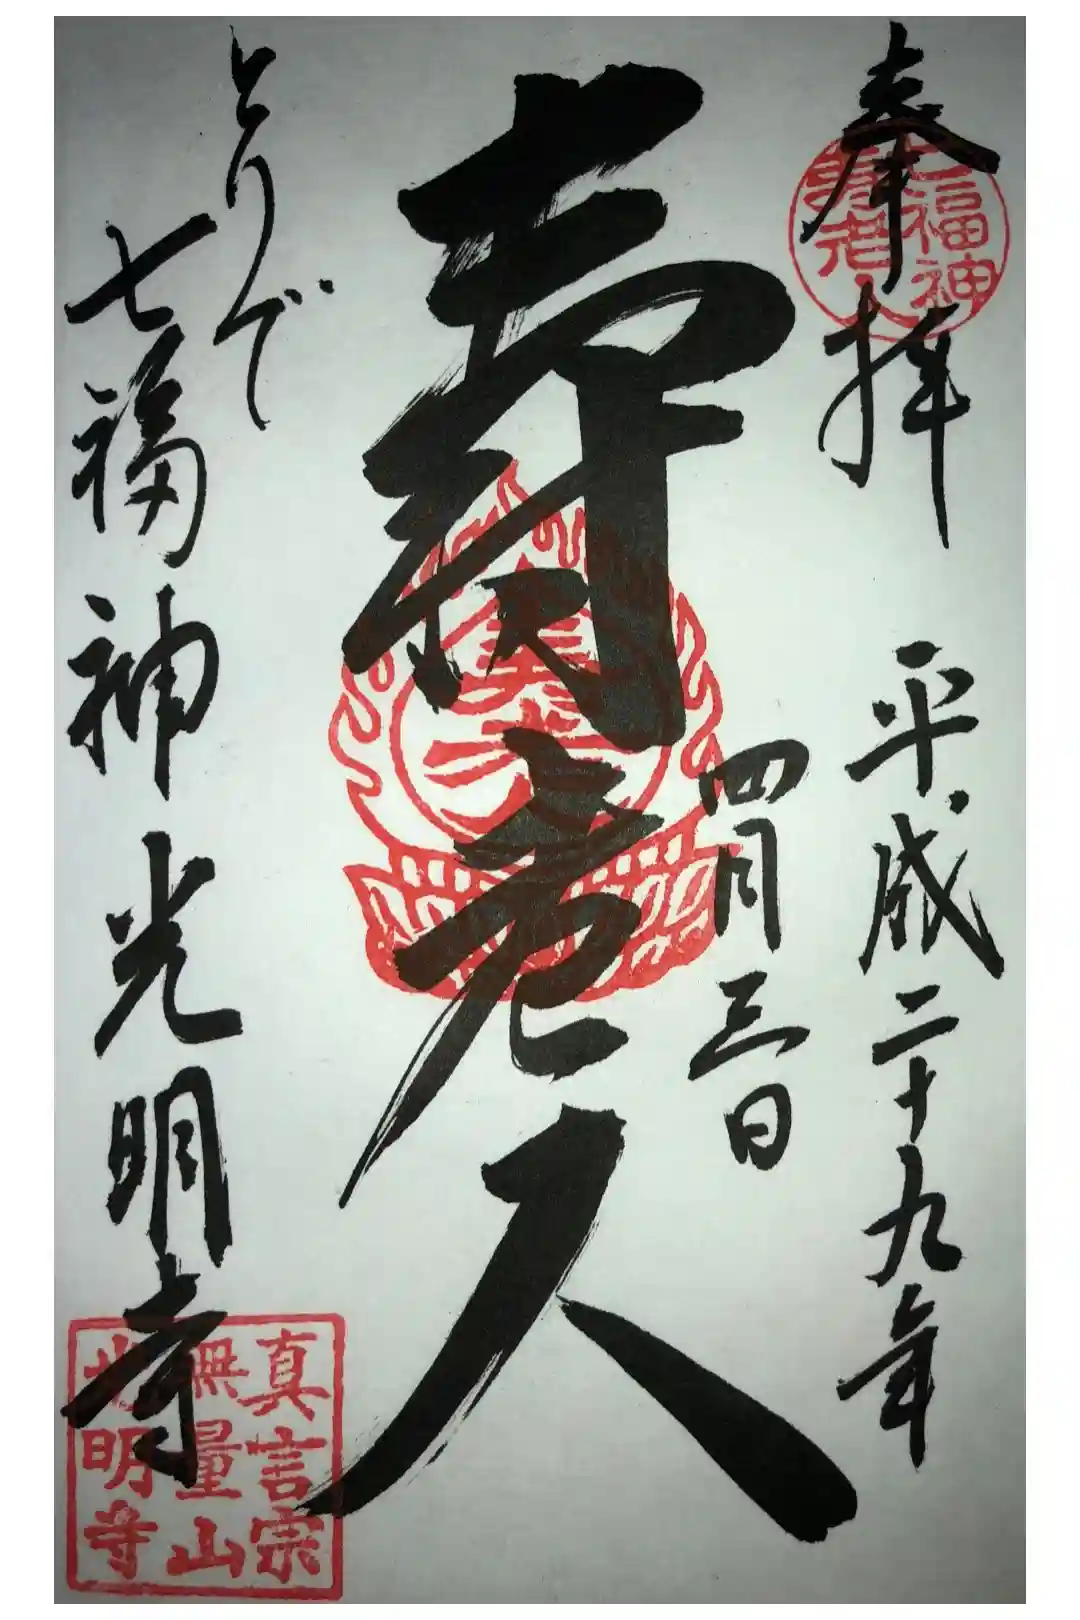 奉拝
平成二十九年
四月三日
寿老人
とりで
七福神 光明寺
七福神
寿老人
真言宗
無量山
光明寺